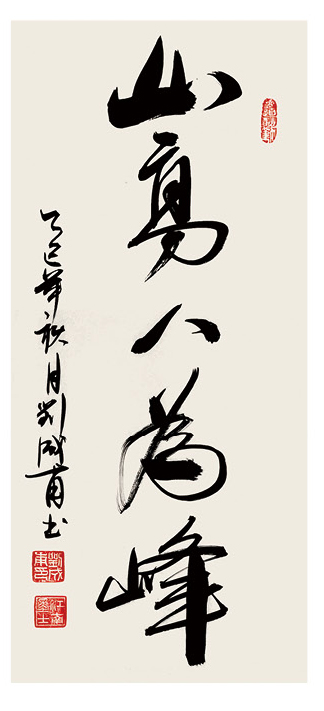 山高人為峰
乙巳年秋月刘成甫书